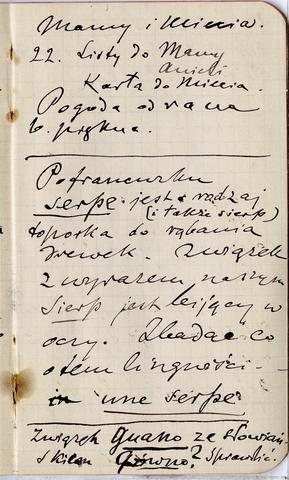 Mamy i Miecia.
22. Listy do Mamy
Anieli
Karta do Miecia.
Pogoda od rana
b. piękna.
Po francusku
serpe jest rodzaj
(i także sierp)
toporka do rąbania
drewek. Związek
z wyrazem naszym
sierp jest bijący w
oczy. Zbadać co
o tem lingwiści -
in une serpe
Związek guano ze słowiań
skiem gówno? Sprawdzić.